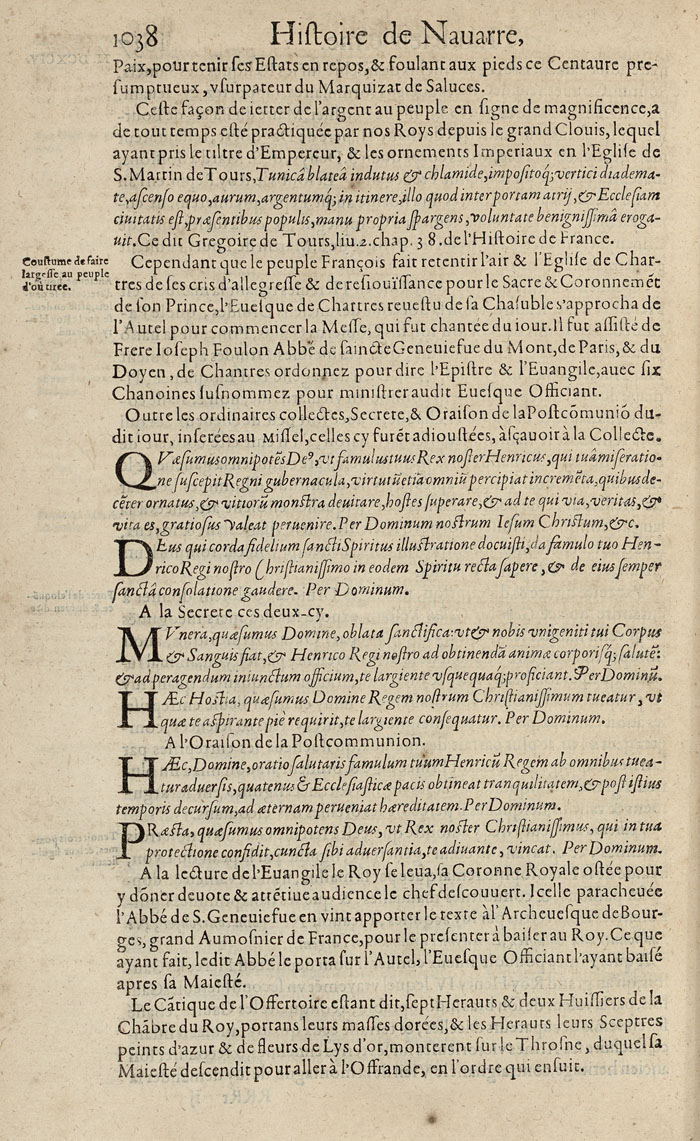 1038 Histoire de Nauarre,
Paix, pour tenir ses Estats en repos, & foulant aux pieds ce Centaure pre-
sumptueux, vsurpateur du Marquizat de Saluces.
Ceste façon de ietter de l'argent au peuple en signe de magnificence, a
de tout temps esté practiquée par nos Roys depuis le grand Clouis, lequel
ayant pris le tiltre d'Empereur, & les ornements Imperiaux en l'Eglise de
S. Martin de Tours, Tunicâ blateâ indutus & chlamide, impositoq; vertici diadema-
te, ascenso equo, aurum, argentumq; in itinere, illo quod inter portam atrij, & Ecclesiam
ciuitatis est, præsentibus populis, manu propria spargens, voluntate benignissimâ eroga-
uit. Ce dit Gregoire de Tours, liu. 2. chap. 38. de l'Histoire de France.
Coustume de faire
largesse au peuple
d'où tirée.
Cependant que le peuple François fait retentir l'air & l'Eglise de Char-
tres de ses cris d'allegresse & de resiouïssance pour le Sacre & Coronnemẽt
de son Prince, l'Euesque de Chartres reuestu de sa Chasuble s'approcha de
l'Autel pour commencer la Messe, qui fut chantée du iour. Il fut assisté de
Frere Ioseph Foulon Abbé de saincte Geneuiefue du Mont, de Paris, & du
Doyen, de Chantres ordonnez pour dire l'Epistre & l'Euangile, auec six
Chanoines susnommez pour ministrer audit Euesque Officiant.
Outre les ordinaires collectes, Secrete, & Oraison de la Postcõmuniõ du-
dit iour, inserées au Missel, celles cy furẽt adioustées, àsçauoir à la Collecte.
QVæsumus omnipotẽs Deꝰ, vt famulus tuus Rex noster Henricus, qui tuâ miseratio-
ne suscepit Regni gubernacula, virtutũ etiã omniũ percipiat incremẽta, quibus de-
cẽter ornatus, & vitiorũ monstra deuitare, hostes superare, & ad te qui via, veritas, &
vita es, gratiosus valeat peruenire. Per Dominum nostrum Iesum Christum, &c.
DEus qui corda fidelium sancti Spiritus illustratione docuisti, da famulo tuo Hen-
rico Regi nostro Christianissimo in eodem Spiritu recta sapere, & de eius semper
sanctâ consolatione gaudere. Per Dominum.
A la Secrete ces deux-cy.
MVnera, quæsumus Domine, oblata sanctifica: vt & nobis vnigeniti tui Corpus
& Sanguis fiat, & Henrico Regi nostro ad obtinendã animæ corporisq; salutẽ:
& ad peragendum iniunctum officium, te largiente vsquequaq; proficiant. Per Dominũ.
HÆc Hostia, quæsumus Domine Regem nostrum Christianissimum tueatur, vt
quæ te aspirante piè requirit, te largiente consequatur. Per Dominum.
A l'Oraison de la Postcommunion.
HÆc, Domine, oratio salutaris famulum tuum Henricũ Regem ab omnibus tuea-
tur aduersis, quatenus & Ecclesiasticæ pacis obtineat tranquilitatem, & post istius
temporis decursum, ad æternam perueniat hæreditatem. Per Dominum.
PRæsta, quæsumus omnipotens Deus, vt Rex noster Christianissimus, qui in tua
protectione confidit, cuncta sibi aduersantia, te adiuante, vincat. Per Dominum.
A la lecture de l'Euangile le Roy se leua, sa Coronne Royale ostée pour
y dõner deuote & attẽtiue audience le chef descouuert. Icelle paracheuée
l'Abbé de S. Geneuiefue en vint apporter le texte à l'Archeuesque de Bour-
ges, grand Aumosnier de France, pour le presenter à baiser au Roy. Ce que
ayant fait, ledit Abbé le porta sur l'Autel, l'Euesque Officiant l'ayant baisé
apres sa Maiesté.
Le Cãtique de l'Offertoire estant dit, sept Herauts & deux Huissiers de la
Chãbre du Roy, portans leurs masses dorées, & les Herauts leurs Sceptres
peints d'azur & de fleurs de Lys d'or, monterent sur le Throsne, duquel sa
Maiesté descendit pour aller à l'Offrande, en l'ordre qui ensuit.